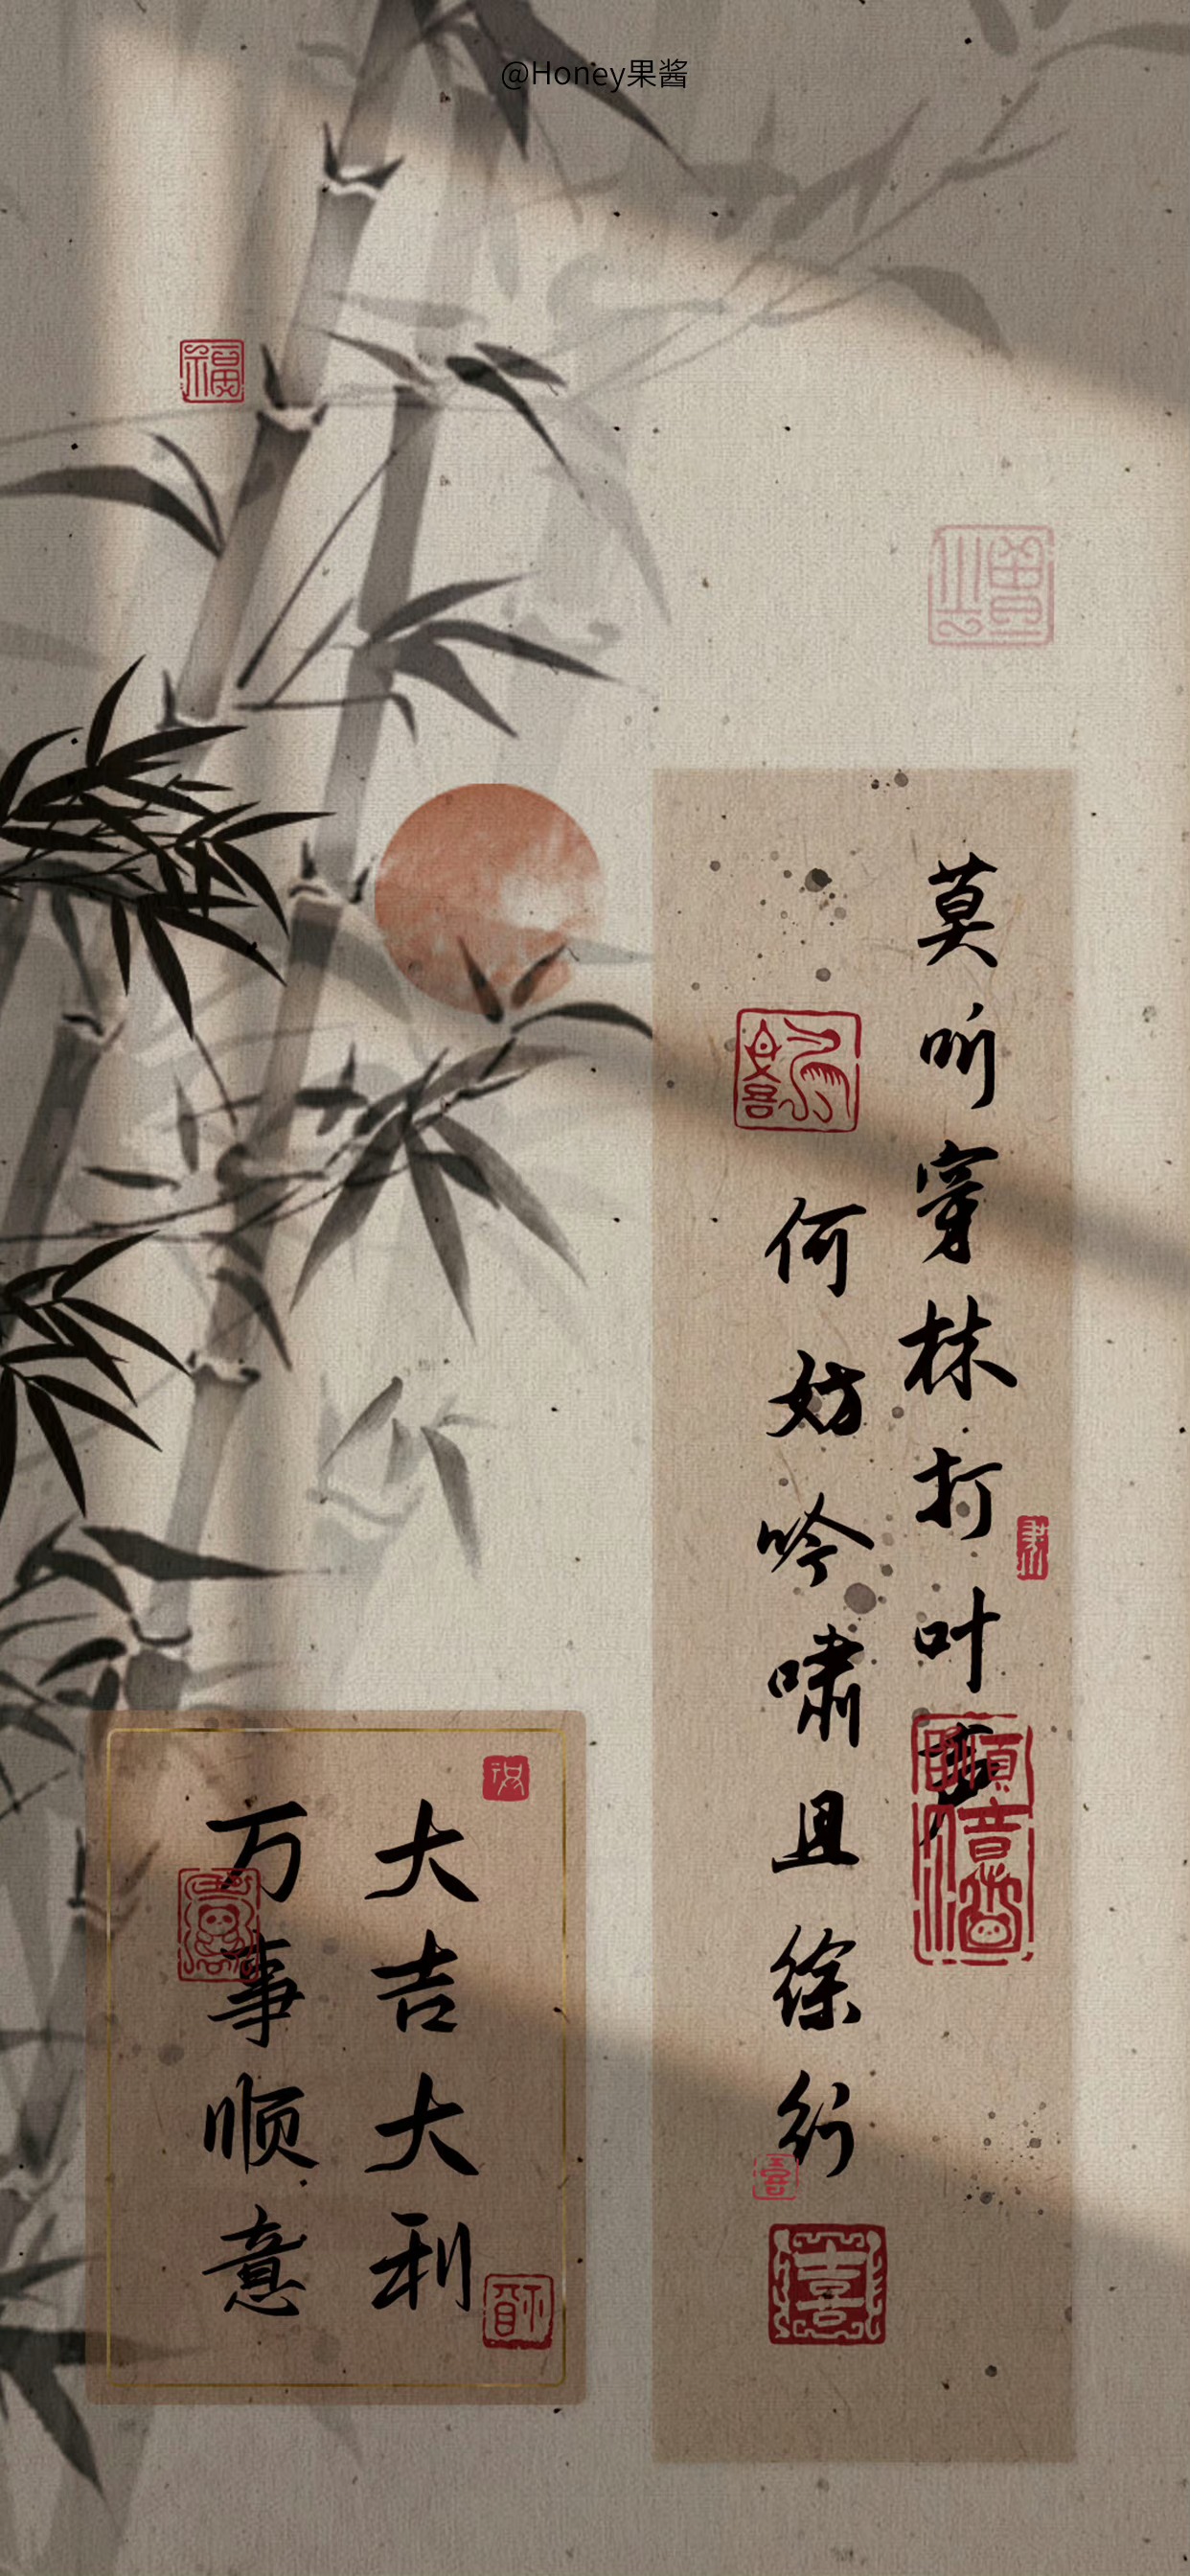 @Honey果酱
福
莫听穿林打叶声
何妨吟啸且徐行
喜
大吉大利
万事顺意